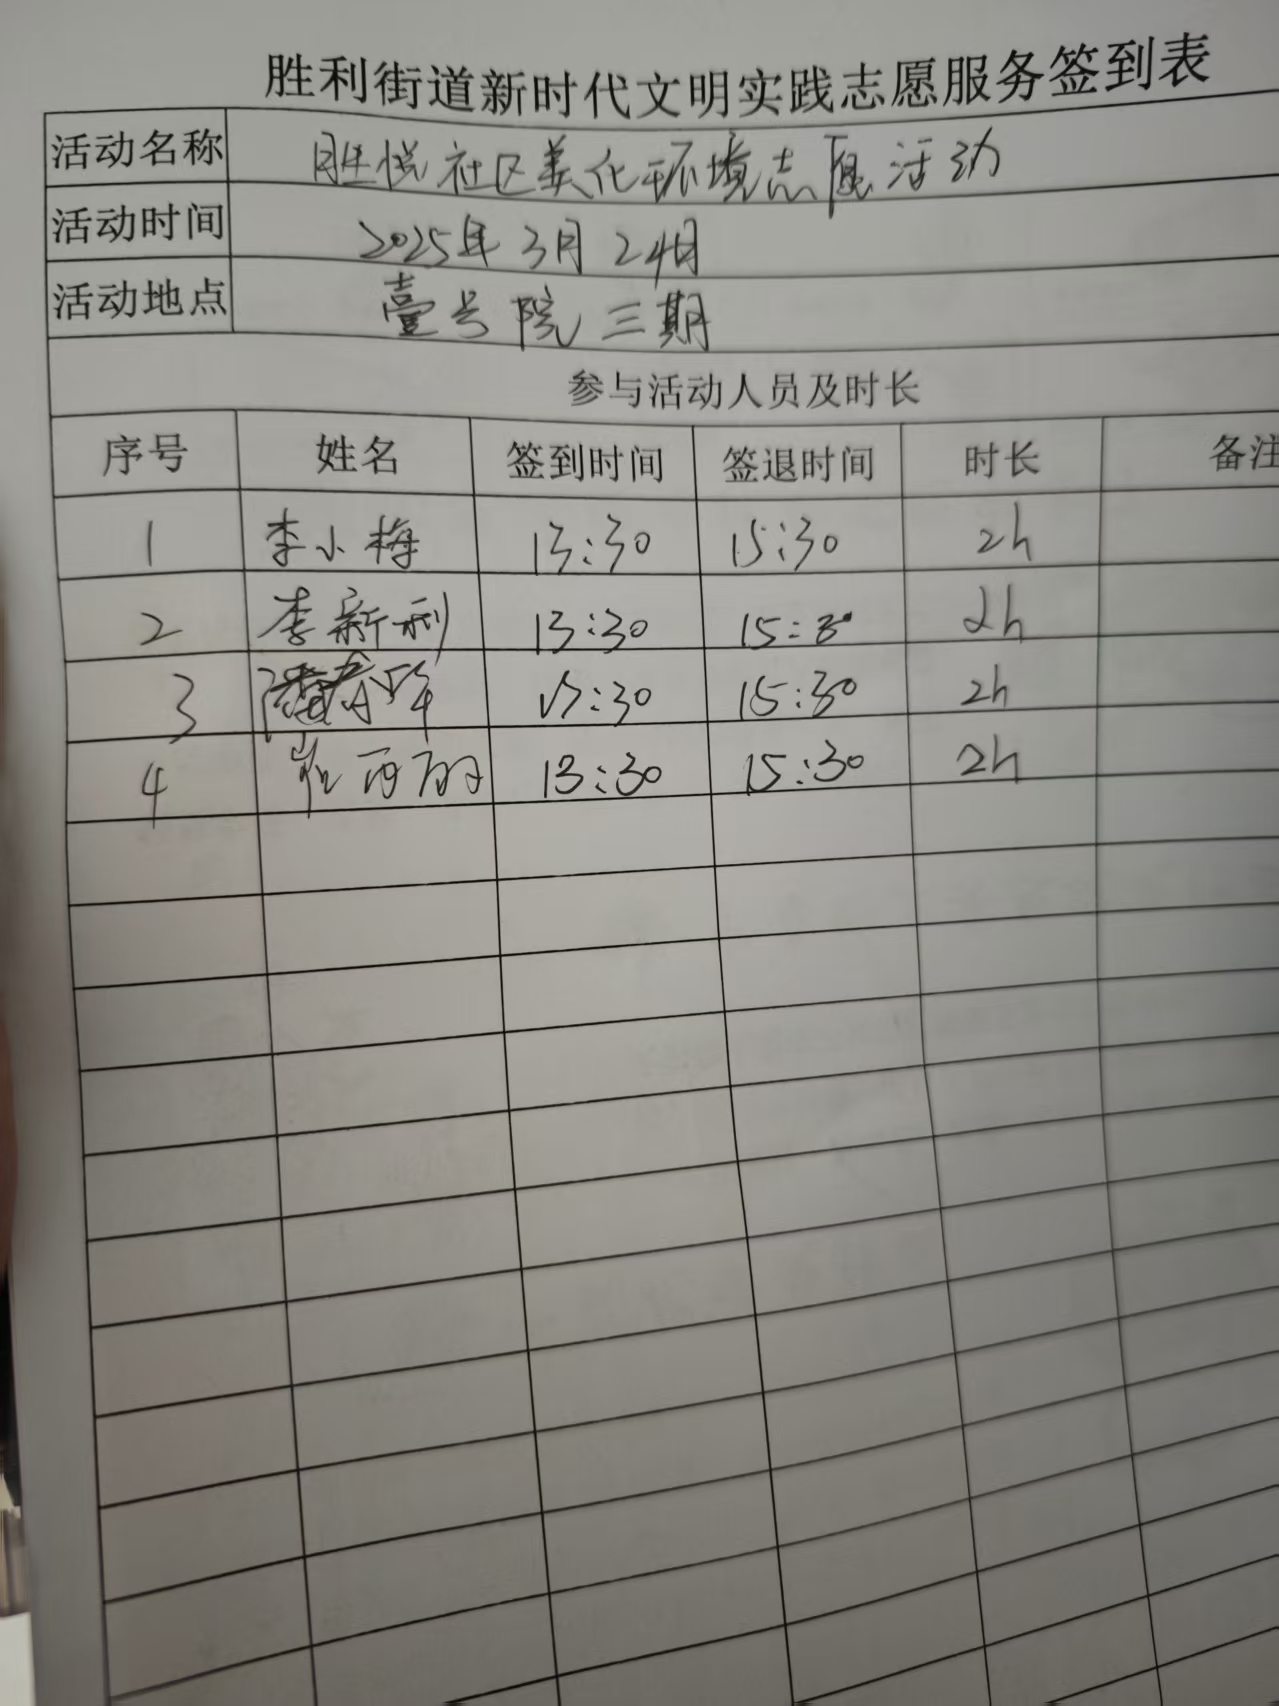 胜利街道新时代文明实践志愿服务签到表
活动名称 胜悦社区美化环境志愿活动
活动时间 2025年3月24日
活动地点 壹号院三期
参与活动人员及时长
序号 姓名 签到时间 签退时间 时长 备注
1 李小梅 13:30 15:30 2h
2 李新利 13:30 15:30 2h
3 13:30 15:30 2h
4 崔丽 13:30 15:30 2h